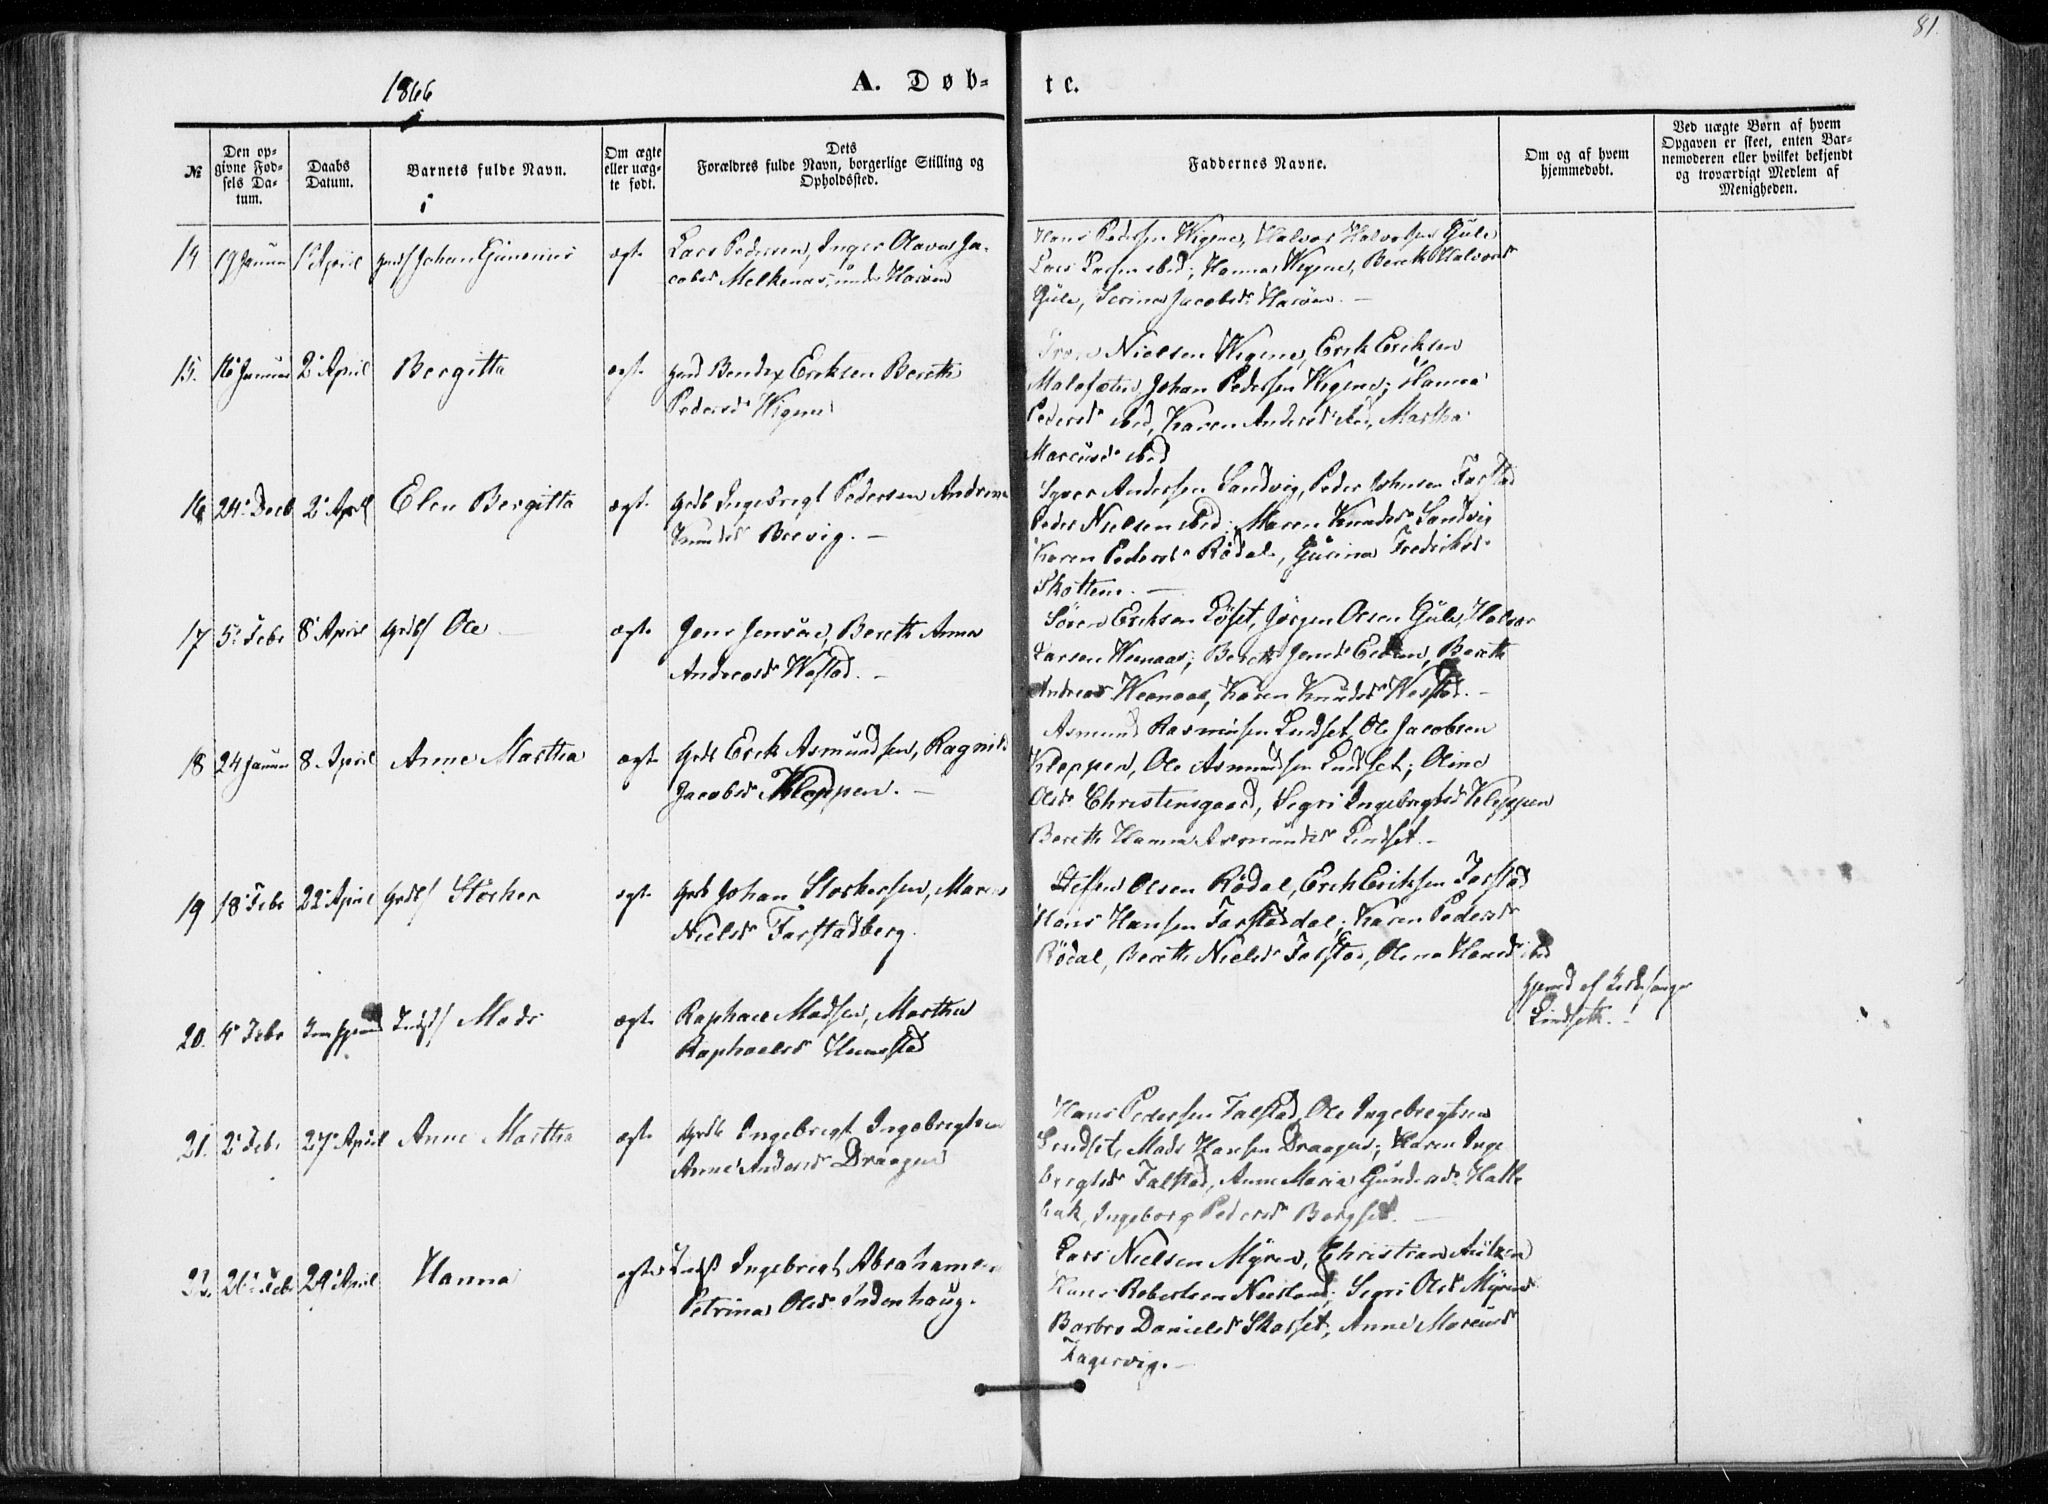 81.
1866
A. Døb-
te.
№
Den op-
givne Fød-
sels Da-
tum.
Daabs
Datum.
Barnets fulde Navn.
Om ægte
eller uæg-
te født.
Dets
Forældres fulde Navn, borgerlige Stilling og
Opholdssted.
Faddernes Navne.
Om og af hvem
hjemmedøbt.
Ved uægte Børn af hvem
Opgaven er skeet, enten Bar-
nemoderen eller hvilket bekjendt
og troværdigt Medlem af
Menigheden.
14 19 Januar 1 April Johan Gunerius ægte
Lars Pedersen, Inger Olava Ja-
cobsd Melkenas under Harøen
Hans Pedersen Wigene, Halvor Halvorsen Gule
Lars Larsen ibid; Hanna Wigene, Bereth Halvorsd
Gule, Serina Jacobsd Harøen. –
15. 16 Januar 2 April Bergitta ægte
Bendix Eriksen Bereth
Pedersd Wigene
Nielsen Wigene, Erik Eriksen
Johan Pedersen Wigene; Hanna
Pedersd ibid, Karen Andersd ibid, Martha
Marcusd ibid
16 24 Decb 2 April Elen Bergitta ægte
Grdb Ingebrigt Pedersen Andrina
Knudsd Brevig. –
Syver Andersen Sandvig, Peder Johnsen Farstad
Peder Nielsen ibid; Maren Knudsd Sandvig
Karen Pedersd Rødal, Gurina Fredriksd
Skottene. –
17 5 Febr 8 April Ole – ægte
Jens Jensen, Bereth Anna
Andreasd Westad. –
Søren Eriksen Løset, Jørgen Olsen Gule, Halvor
Larsen Weenaas; Bereth Jensd Eedem, Bereth
Andreasd Weenaas, Karen Knudsd Westad. –
18 24 Januar 8 April Anne Martha ægte
Grdb Erik Asmundsen, Ragnild
Jacobsd Kleppen. –
Asmund Rasmusen Lindset, Ole Jacobsen
Kleppen, Ole Asmundsen Lindset; Oline
Olsd Christensgaard, Segri Ingebrigtsd Kleppen
Bereth Hanna Asmundsd Lindset. –
19 18 Febr 22 April Størker ægte
Grdb Johan Storkersen, Maren
Nielsd Farstadberg.
Steffen Olsen Rødal, Erik Eriksen Farstad
Hans Hansen Farstaddal; Karen Pedersd
Rødal, Bereth Nielsd Farstad, Olena Hansd ibid
20. 4 Febr Mads ægte
Raphael Madsen, Martha
Raphaelsd Humstad
Hjemd af Kirkesanger
Lindseth. –
21. 2 Febr 27 April Anne Martha ægte
Grdb Ingebrigt Ingebrigtsen
Anne Andersd Draagen
Hans Pedersen Talstad, Ole Ingebrigtsen
Lindset, Mads Hansen Draagen; Karen Inge
brigtsd Talstad, Anne Maria Gundersd Halle
bak, Ingeborg Pedersd Bergset. –
22. 26 Febr 29 April Hanna ægte
Ingebrigt Abrahamsen
Petrina Olsd Indenhaug.
Lars Nielsen Myren, Christian
Hans Robertsen Neesland; Segri Olsd Myren
Barbro Danielsd Skarset, Anne Marcusd
Fagervig. –